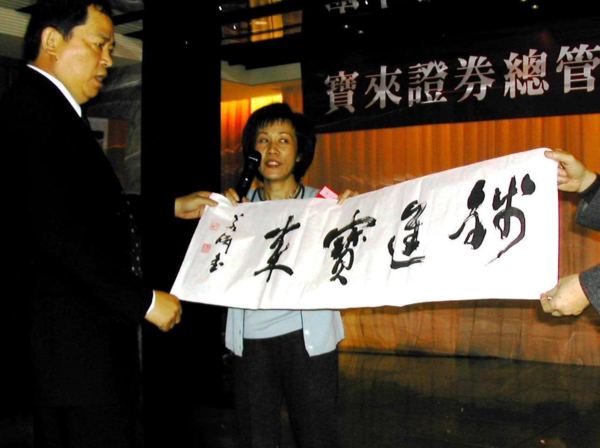 寶來證券總管
錢進寶來